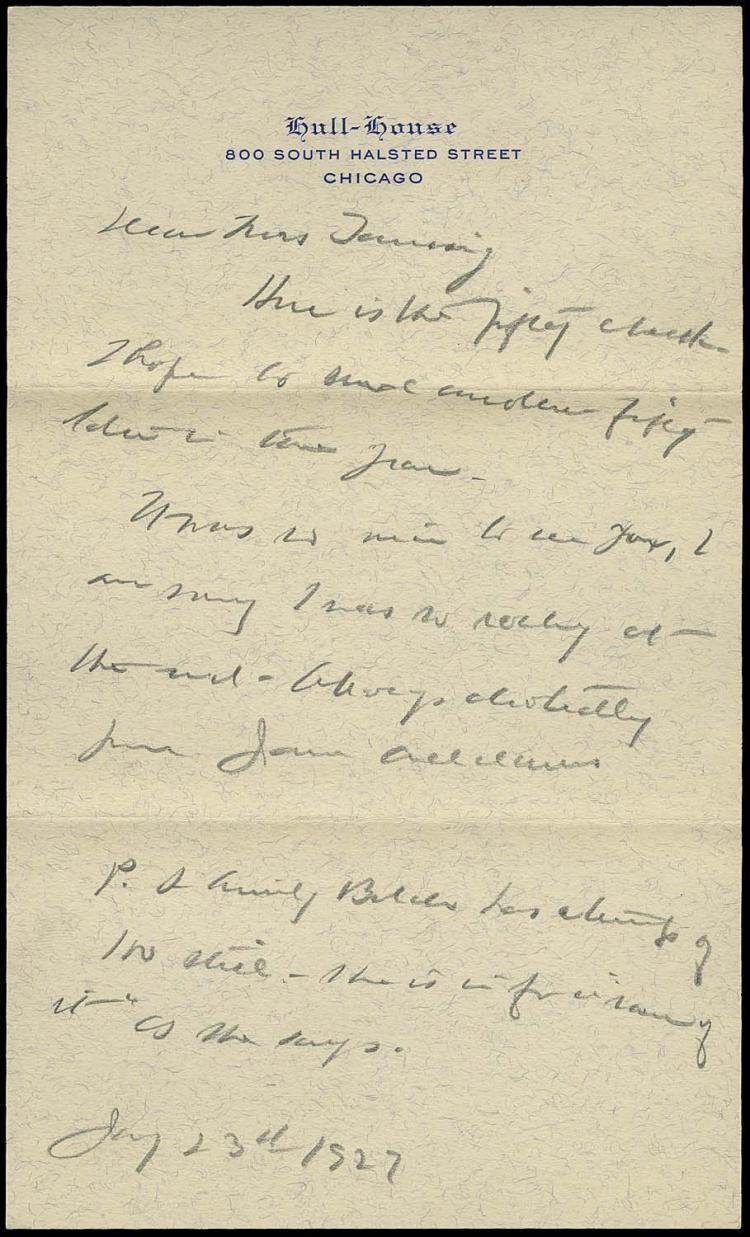 Hull-House
800 SOUTH HALSTED STREET
CHICAGO
Dear Mrs Taussig
Here is the fifty check
I hope to send another fifty
later in the year.
It was so nice to see you, I
am sorry I was so rocky at
the end - Always devotedly
yours Jane Addams
P. S Emily Balch has a temp of
100 still - she is in for "
it" as she says.
Jay 23rd 1927